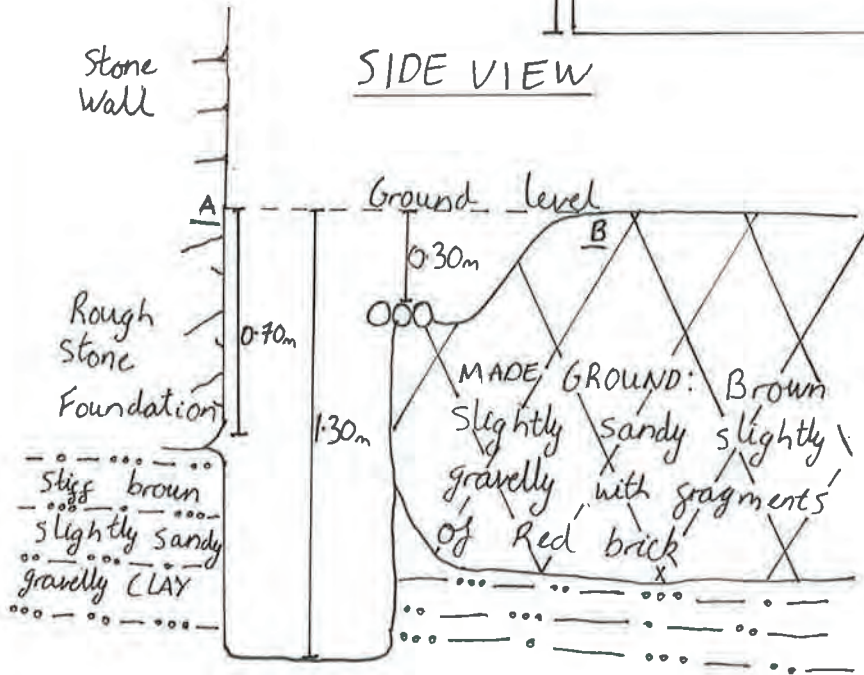 SIDE VIEW
Stone
Wall
A
Ground level
B
0.30m
Rough
Stone
Foundation
0.70m
1.30m
MADE GROUND: Brown
Slightly sandy slightly
gravelly with fragments
of Red brick
stiff brown
slightly sandy
gravelly CLAY